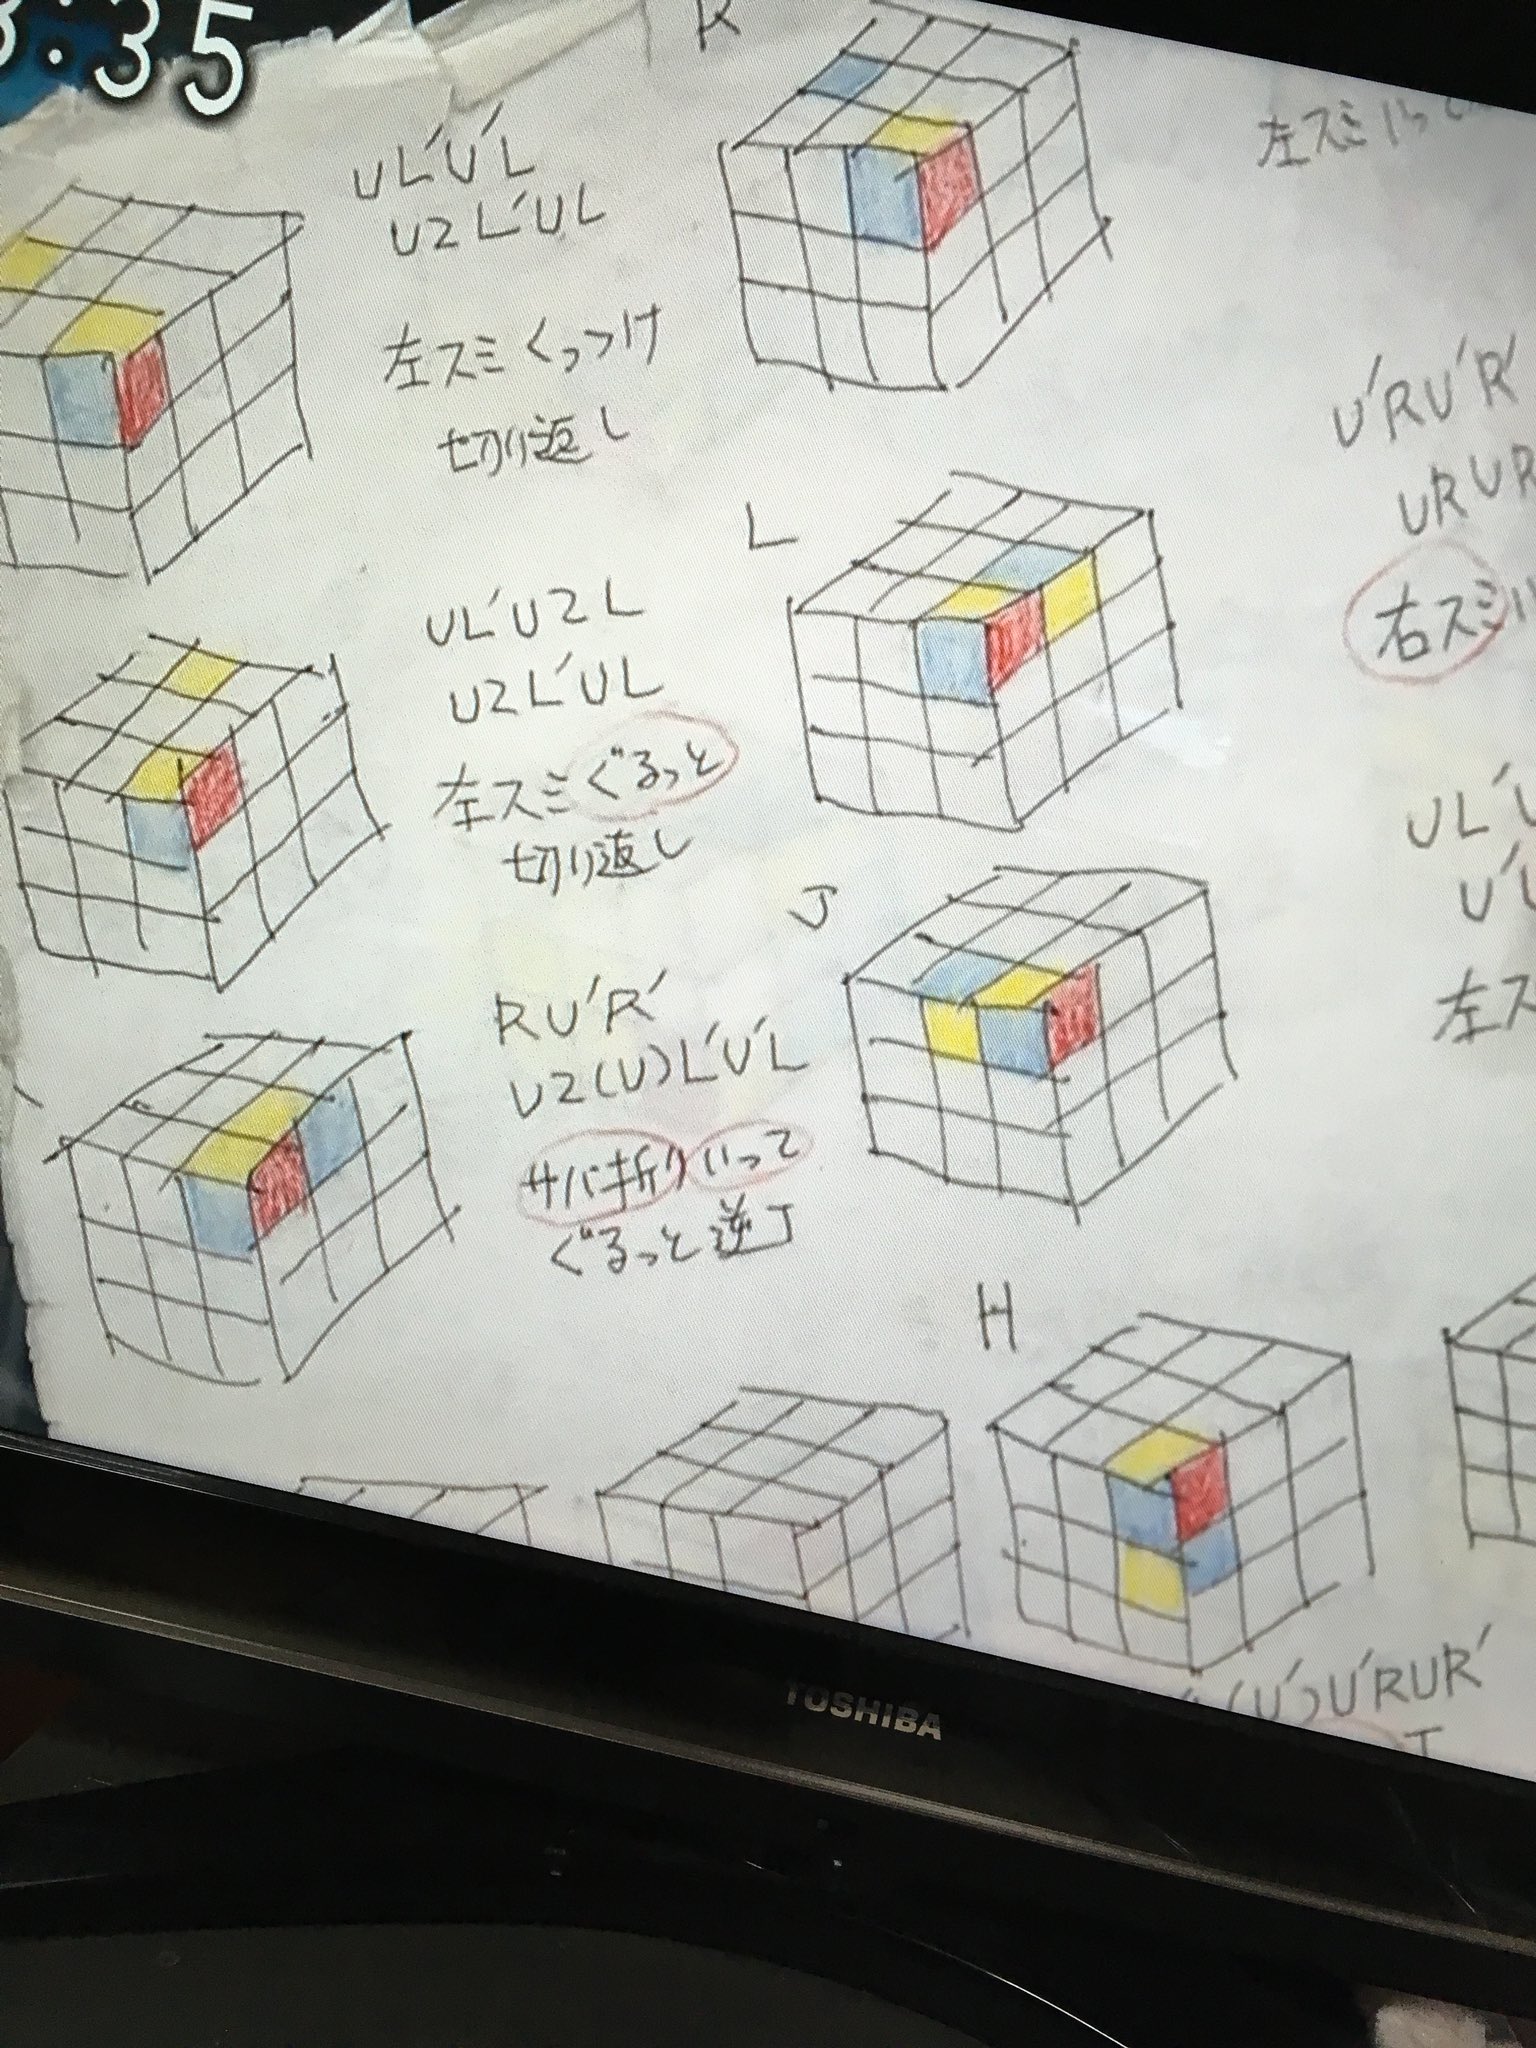 :35
R
UL'U'L
U2L'UL
左スミくっつけ
切り返し
左スミ
U'RU'R'
URUR
右スミ
L
UL'U2L
U2L'UL
左スミぐるっと
切り返し
J
UL'
U'
左ス
RU'R'
U2(U)L'U'L
サバ折りいって
ぐるっと逆J
H
(U')U'RUR'
J
TOSHIBA